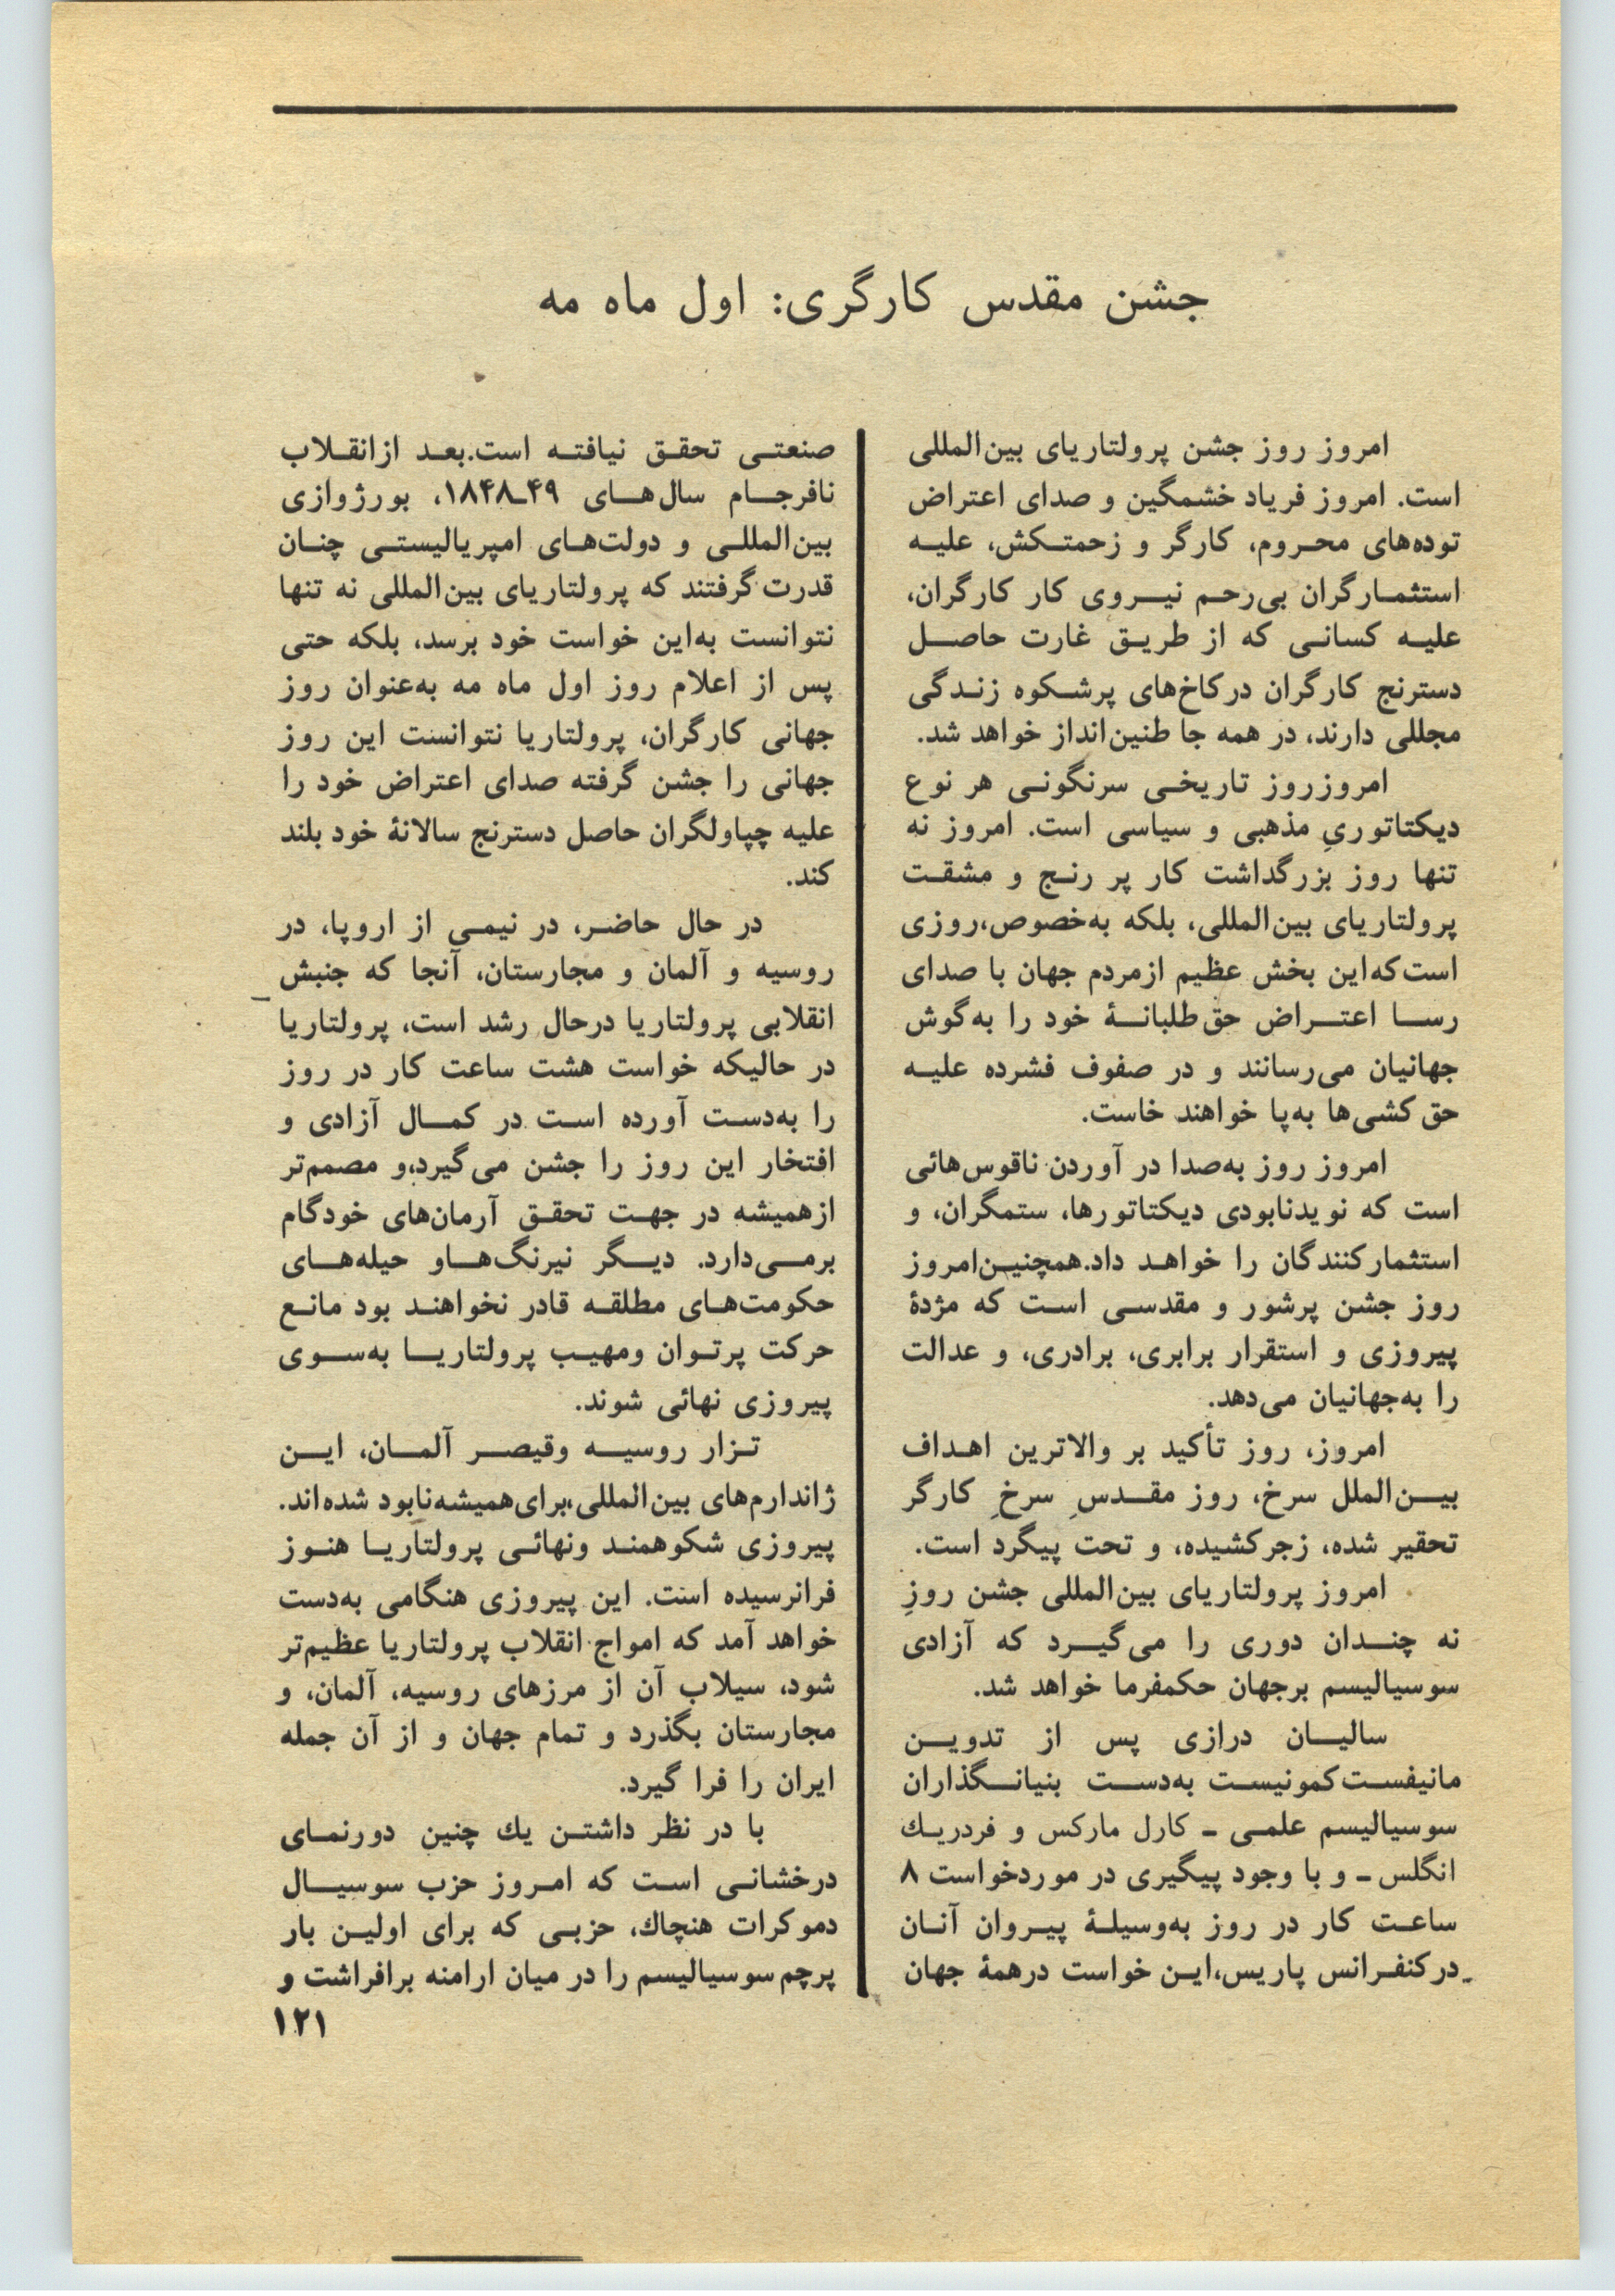 جشن مقدس کارگری: اول ماه مه
امروز روز جشن پرولتاریای بین‌المللی
است. امروز فریاد خشمگین و صدای اعتراض
توده‌های محروم، کارگر و زحمتکش، علیه
استثمارگران بی‌رحم نیروی کار کارگران،
علیه کسانی که از طریق غارت حاصل
دسترنج کارگران در کاخ‌های پرشکوه زندگی
مجللی دارند، در همه جا طنین‌انداز خواهد شد.
امروز روز تاریخی سرنگونی هر نوع
دیکتاتوریِ مذهبی و سیاسی است. امروز نه
تنها روز بزرگداشت کار پر رنج و مشقت
پرولتاریای بین‌المللی، بلکه به‌خصوص، روزی
است که این بخش عظیم از مردم جهان با صدای
رسا اعتراض حق‌طلبانهٔ خود را به‌گوش
جهانیان می‌رسانند و در صفوف فشرده علیه
حق‌کشی‌ها به‌پا خواهند خاست.
امروز روز به‌صدا در آوردن ناقوس‌هائی
است که نوید نابودی دیکتاتورها، ستمگران، و
استثمارکنندگان را خواهد داد. همچنین امروز
روز جشن پرشور و مقدسی است که مژدهٔ
پیروزی و استقرار برابری، برادری، و عدالت
را به‌جهانیان می‌دهد.
امروز، روز تأکید بر والاترین اهداف
بین‌الملل سرخ، روز مقدسِ سرخِ کارگر
تحقیر شده، زجر کشیده، و تحت پیگرد است.
امروز پرولتاریای بین‌المللی جشن روزِ
نه چندان دوری را می‌گیرد که آزادی
سوسیالیسم بر جهان حکمفرما خواهد شد.
سالیان درازی پس از تدوین
مانیفست کمونیست به‌دست بنیانگذاران
سوسیالیسم علمی ـ کارل مارکس و فردریك
انگلس ـ و با وجود پیگیری در مورد خواست ۸
ساعت کار در روز به‌وسیلهٔ پیروان آنان
در کنفرانس پاریس، این خواست در همهٔ جهان
صنعتی تحقق نیافته است. بعد از انقلاب
نافرجام سال‌های ۴۹ـ۱۸۴۸، بورژوازی
بین‌المللی و دولت‌های امپریالیستی چنان
قدرت گرفتند که پرولتاریای بین‌المللی نه تنها
نتوانست به‌این خواست خود برسد، بلکه حتی
پس از اعلام روز اول ماه مه به‌عنوان روز
جهانی کارگران، پرولتاریا نتوانست این روز
جهانی را جشن گرفته صدای اعتراض خود را
علیه چپاولگران حاصل دسترنج سالانهٔ خود بلند
کند.
در حال حاضر، در نیمی از اروپا، در
روسیه و آلمان و مجارستان، آنجا که جنبش
انقلابی پرولتاریا درحال رشد است، پرولتاریا
در حالیکه خواست هشت ساعت کار در روز
را به‌دست آورده است در کمال آزادی و
افتخار این روز را جشن می‌گیرد، و مصمم‌تر
از همیشه در جهت تحقق آرمان‌های خود گام
برمی‌دارد. دیگر نیرنگ‌ها و حیله‌های
حکومت‌های مطلقه قادر نخواهند بود مانع
حرکت پرتوان و مهیب پرولتاریا به‌سوی
پیروزی نهائی شوند.
تزار روسیه و قیصر آلمان، این
ژاندارم‌های بین‌المللی، برای همیشه نابود شده‌اند.
پیروزی شکوهمند و نهائی پرولتاریا هنوز
فرانرسیده است. این پیروزی هنگامی به‌دست
خواهد آمد که امواج انقلاب پرولتاریا عظیم‌تر
شود، سیلاب آن از مرزهای روسیه، آلمان، و
مجارستان بگذرد و تمام جهان و از آن جمله
ایران را فرا گیرد.
با در نظر داشتن یك چنین دورنمای
درخشانی است که امروز حزب سوسیال
دموکرات هنچاك، حزبی که برای اولین بار
پرچم سوسیالیسم را در میان ارامنه برافراشت و
۱۲۱